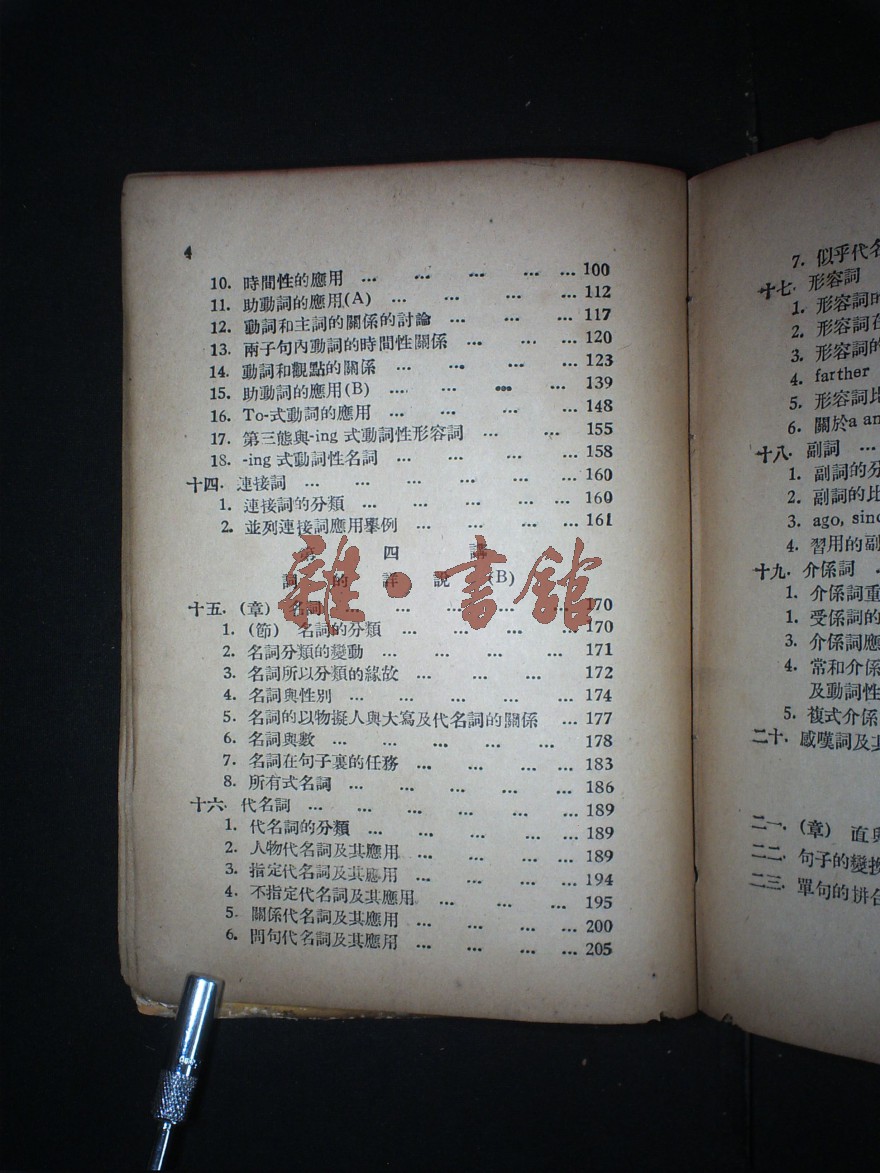 4
10. 時間性的應用 … … … … … 100
11. 助動詞的應用(A) … … … … 112
12. 動詞和主詞的關係的討論 … … … 117
13. 兩子句內動詞的時間性關係 … … … 120
14. 動詞和觀點的關係 … … … … 123
15. 助動詞的應用(B) … … … … 139
16. To-式動詞的應用 … … … … 148
17. 第三態與-ing 式動詞性形容詞 … … 155
18. -ing 式動詞性名詞 … … … … 158
十四. 連接詞 … … … … … 160
1. 連接詞的分類 … … … … … 160
2. 並列連接詞應用舉例 … … … … 161
第 四 講
詞 的 詳 說 (B)
雜·書館
十五. (章) 名詞 … … … … 170
1. (節) 名詞的分類 … … … … 170
2. 名詞分類的變動 … … … … 171
3. 名詞所以分類的緣故 … … … … 172
4. 名詞與性別 … … … … … 174
5. 名詞的以物擬人與大寫及代名詞的關係 … 177
6. 名詞與數 … … … … … 178
7. 名詞在句子裏的任務 … … … … 183
8. 所有式名詞 … … … … … 186
十六. 代名詞 … … … … … 189
1. 代名詞的分類 … … … … … 189
2. 人物代名詞及其應用 … … … … 189
3. 指定代名詞及其應用 … … … … 194
4. 不指定代名詞及其應用 … … … 195
5. 關係代名詞及其應用 … … … … 200
6. 問句代名詞及其應用 … … … … 205
7. 似乎代名
十七. 形容詞
1. 形容詞的
2. 形容詞在
3. 形容詞的
4. farther
5. 形容詞比
6. 關於a an
十八. 副詞 …
1. 副詞的分
2. 副詞的比
3. ago, sinc
4. 習用的副
十九. 介係詞
1. 介係詞重
1. 受係詞的
3. 介係詞應
4. 常和介係
及動詞性
5. 複式介係
二十. 感嘆詞及其
二一. (章) 直與
二二. 句子的變換
二三. 單句的拼合